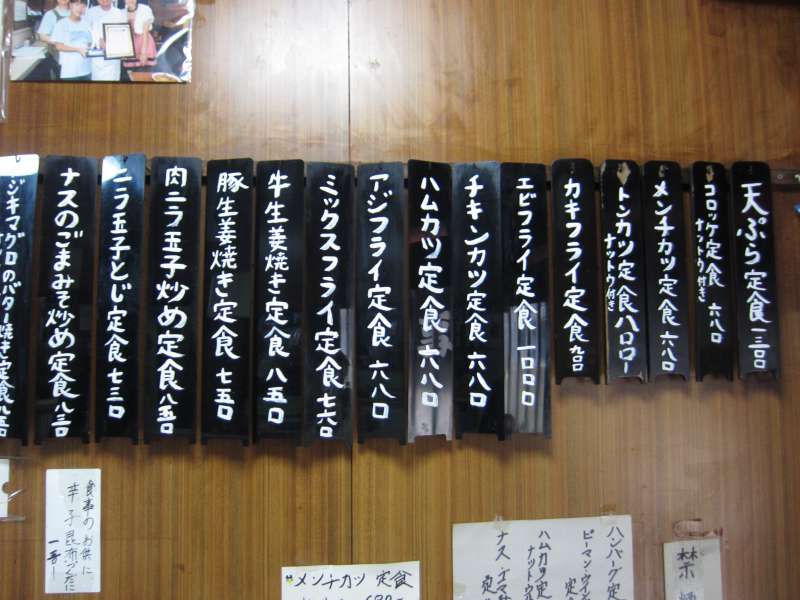 天ぷら定食 一三〇〇
コロッケ定食 六八〇
ナットウ付き
メンチカツ定食 六八〇
トンカツ定食 八〇〇
ナットウ付き
カキフライ定食 九〇〇
エビフライ定食 一〇〇〇
チキンカツ定食 六八〇
ハムカツ定食 六八〇
アジフライ定食 六八〇
ミックスフライ定食 七六〇
牛生姜焼き定食 八五〇
豚生姜焼き定食 七五〇
肉ニラ玉子炒め定食 八五〇
ニラ玉子とじ定食 七三〇
ナスのごまみそ炒め定食 八三〇
ジキマグロのバター焼き定食
ハンバーグ定
ピーマン
定
ハムカツ
ナットウ
ナス
メンチカツ 定食
食事のお供に
辛子昆布
禁